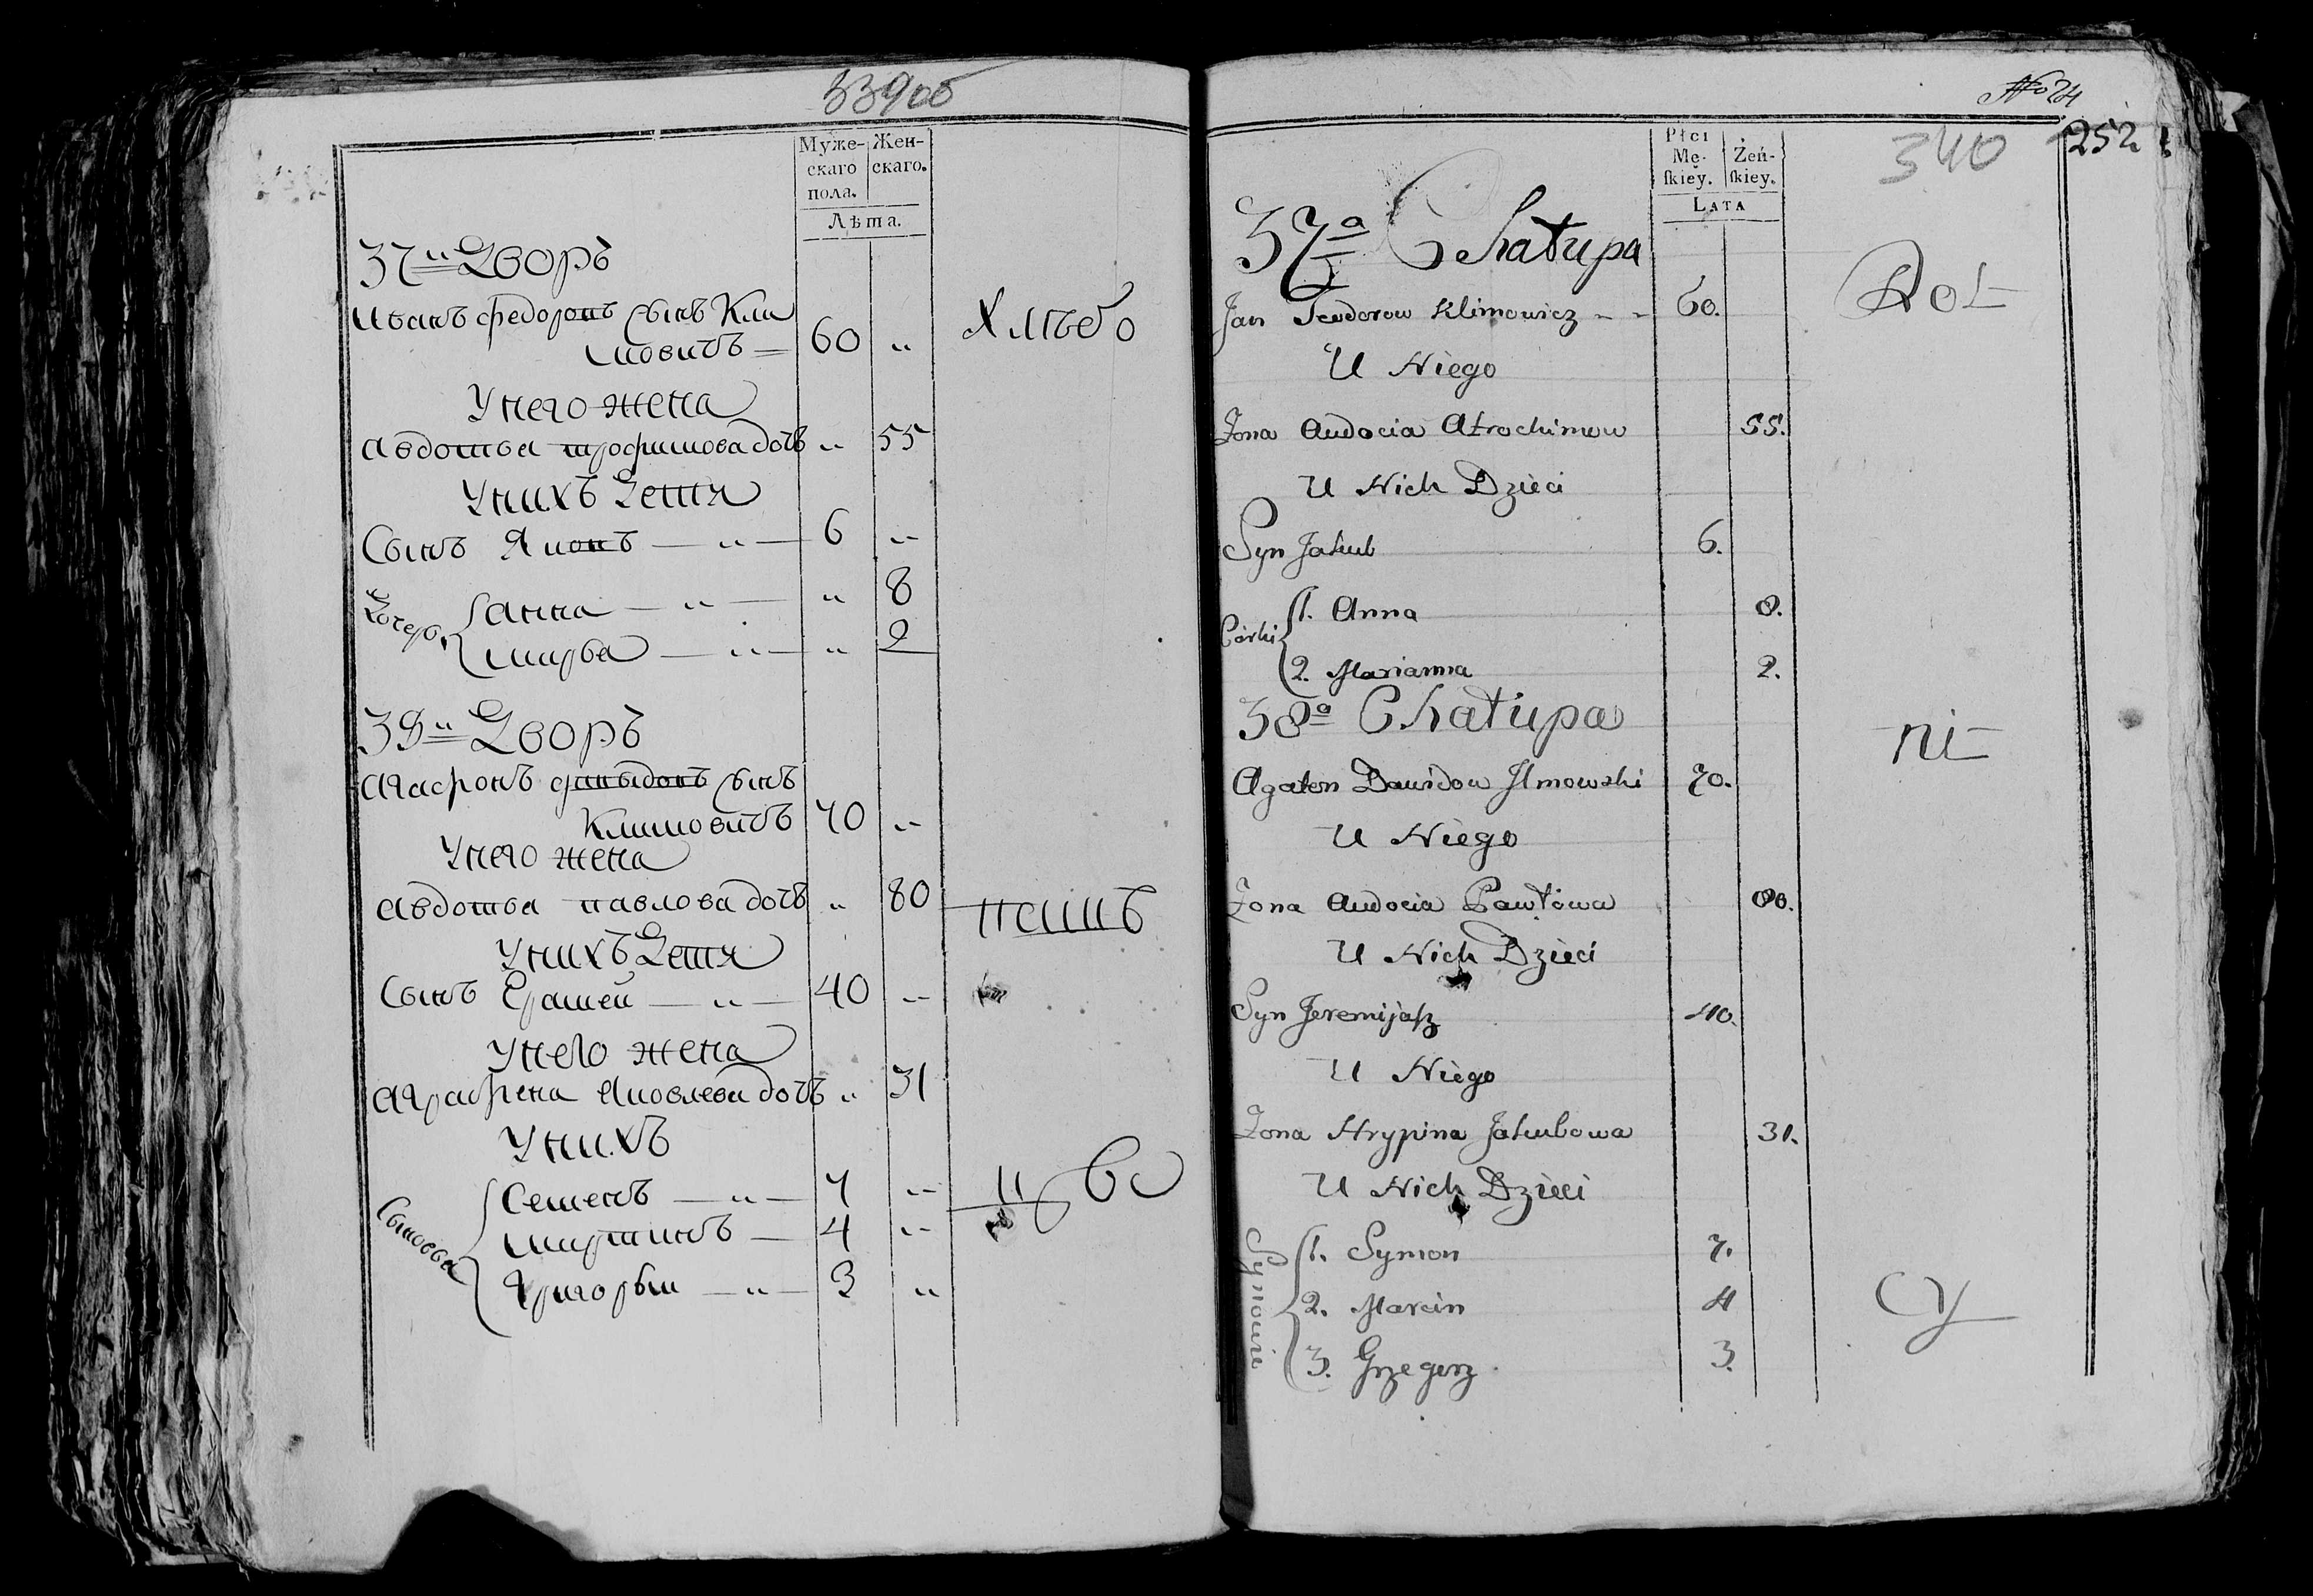 339об
Муже-
скаго
пола.
Жен-
скаго.
Лѣта.
37й Дворъ
Иванъ федоровъ сынъ Кли
мовичъ 60 "
У него жена
Авдотья трофимова дочь " 55
У нихъ Детя
Сынъ Яковъ — " — 6 "
Дочери Анна — " — " 8
Марья — " — " 2
Дворъ
Агафонъ давыдовъ сынъ
Климовичъ 70 "
У него жена
Авдотья павлова дочь " 80
У нихъ Детя
Сынъ Ерамей — " — 40 "
У него жена
Аграфена Яковлева дочь " 31
У нихъ
Сыновья Семенъ — " — 7 "
Мартинъ — 4 "
Григорьи — " — 3 "
Хлѣбо
пашъ
цы
No 24
252
340
Płci
Mę-
skiey.
Żeń-
skiey.
Lata
37a Chałupa
Jan Teodorow Klimowicz - - 60.
U Niego
Żona Audocia Atrochimow 55.
U Nich Dzieci
Syn Jakub 6.
Córki 1. Anna 8.
2. Marianna 2.
38a Chałupa
Agaton Dawidow Jlmowski 70.
U Niego
Żona Audocia Pawłowa 80.
U Nich Dzieci
Syn Jeremijasz 40.
U Niego
Żona Hrypina Jakubowa 31.
U Nich Dzieci
Synowie 1. Symon 7.
2. Marcin 4
3. Grzegorz 3.
Rol-
ni-
cy